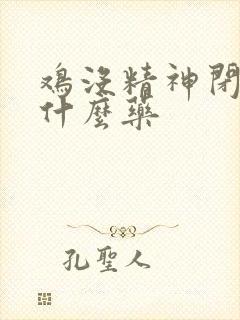 鸡没精神閉
什麼藥
孔聖人